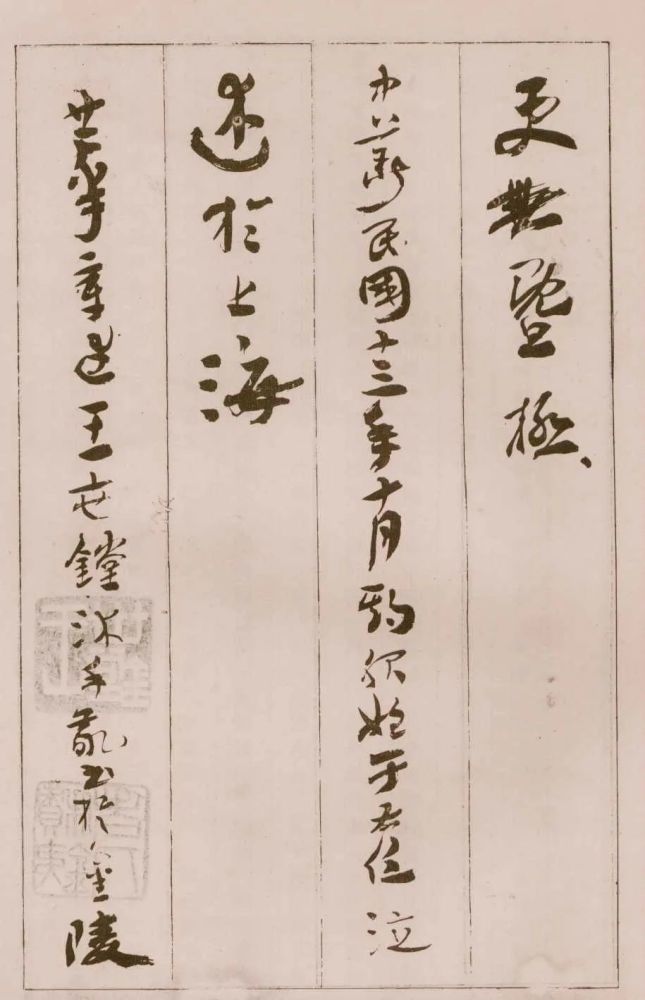 更無暨極
中華民國十三年十月期服姪于右任泣
述於上海
年王世鏜沐手敬書於金陵